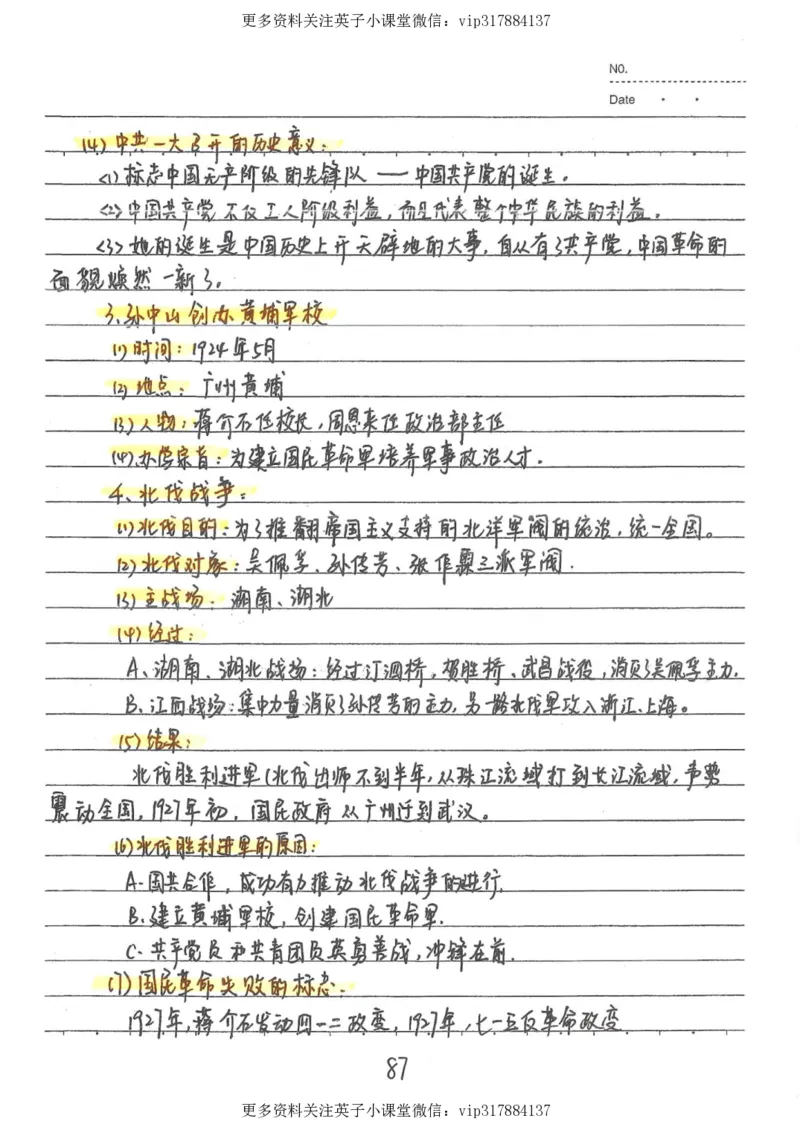 更多资料关注英子小课堂微信：vip317884137
NO.
Date
(4)中共一大召开的历史意义：
<1>标志中国无产阶级的先锋队——中国共产党的诞生。
<2>中国共产党不仅工人阶级利益，而且代表整个中华民族的利益。
<3>她的诞生是中国历史上开天辟地的大事，自从有了共产党，中国革命的
面貌焕然一新了。
3.孙中山创办黄埔军校
(1)时间：1924年5月
(2)地点：广州黄埔
(3)人物：蒋介石任校长，周恩来任政治部主任
(4)办学宗旨：为建立国民革命军培养军事政治人才.
4、北伐战争：
(1)北伐目的：为了推翻帝国主义支持的北洋军阀的统治，统一全国。
(2)北伐对象：吴佩孚、孙传芳、张作霖三派军阀.
(3)主战场：湖南、湖北
(4)经过：
A、湖南、湖北战场：经过汀泗桥，贺胜桥、武昌战役，消灭了吴佩孚主力.
B、江西战场：集中力量消灭了孙传芳的主力.另一路北伐军攻入浙江、上海。
(5)结果：
北伐胜利进军(北伐出师不到半年，从珠江流域打到长江流域，声势
震动全国，1927年初，国民政府从广州迁到武汉。
(6)北伐胜利进军的原因：
A.国共合作，成功有力推动北伐战争的进行.
B.建立黄埔军校，创建国民革命军.
C.共产党员和共青团员英勇善战，冲锋在前.
(7)国民革命失败的标志：
1927年，蒋介石发动四一二政变，1927年，七一五反革命政变
87
更多资料关注英子小课堂微信：vip317884137